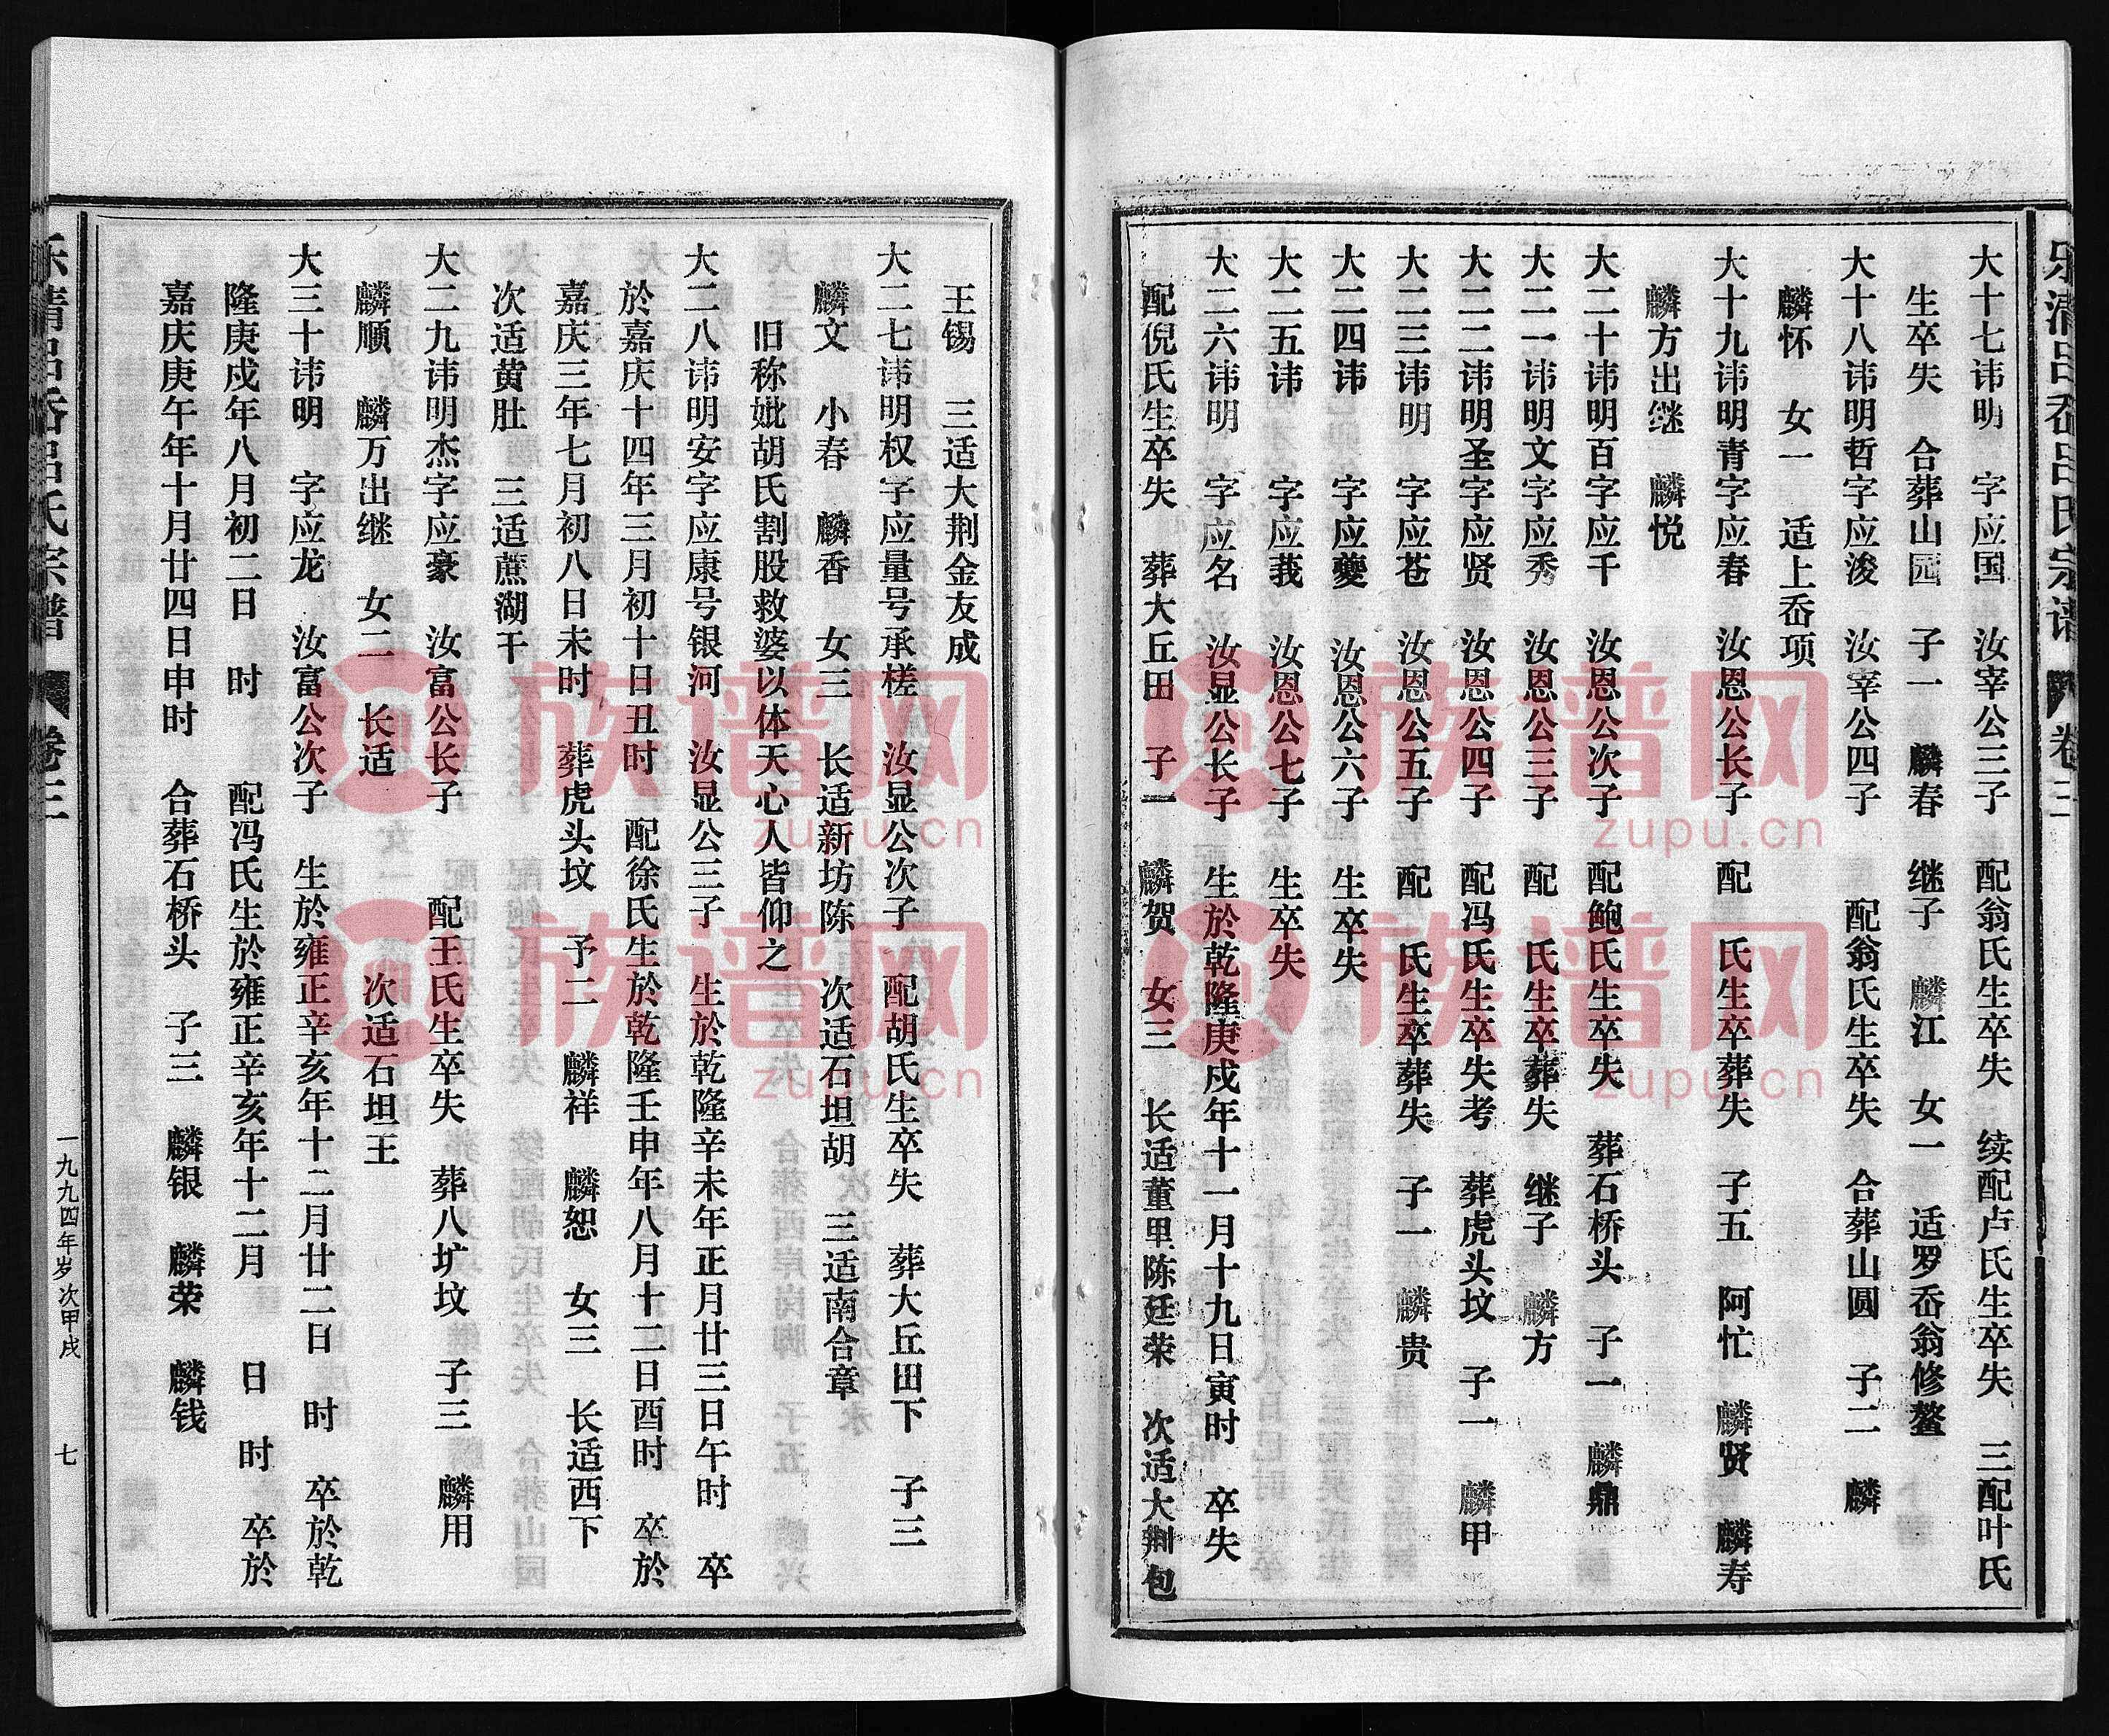 大十七讳明　字应国　汝宰公三子　配翁氏生卒失　续配卢氏生卒失　三配叶氏
生卒失　合葬山园　子一　麟春　继子　麟江　女一　适罗岙翁修鳌
大十八讳明哲字应浚　汝宰公四子　配翁氏生卒失　合葬山圆　子二　麟
麟怀　女一　适上岙项
大十九讳明青字应春　汝恩公长子　配　氏生卒葬失　子五　阿忙　麟贤　麟寿
麟方出继　麟悦
大二十讳明百字应千　汝恩公次子　配鲍氏生卒失　葬石桥头　子一　麟鼎
大二一讳明文字应秀　汝恩公三子　配　氏生卒葬失　继子　麟方
大二二讳明圣字应贤　汝恩公四子　配冯氏生卒失考　葬虎头坟　子一　麟甲
大二三讳明　字应苍　汝恩公五子　配　氏生卒葬失　子一　麟贵
大二四讳　字应夔　汝恩公六子　生卒失
大二五讳　字应莪　汝恩公七子　生卒失
大二六讳明　字应名　汝显公长子　生於乾隆庚戍年十一月十九日寅时　卒失
配倪氏生卒失　葬大丘田　子一　麟贺　女三　长适董里陈廷荣　次适大荆包
王锡　三适大荆金友成
大二七讳明权字应量号承槎　汝显公次子　配胡氏生卒失　葬大丘田下　子三
麟文　小春　麟香　女三　长适新坊陈　次适石坦胡　三适南合章
旧称妣胡氏割股救婆以体天心人皆仰之
大二八讳明安字应康号银河　汝显公三子　生於乾隆辛未年正月廿三日午时　卒
於嘉庆十四年三月初十日丑时　配徐氏生於乾隆壬申年八月十二日酉时　卒於
嘉庆三年七月初八日未时　葬虎头坟　予二　麟祥　麟恕　女三　长适西下
次适黄肚　三适蔗湖干
大二九讳明杰字应豪　汝富公长子　配王氏生卒失　葬八圹坟　子三　麟用
麟顺　麟万出继　女二　长适　次适石坦王
大三十讳明　字应龙　汝富公次子　生於雍正辛亥年十二月廿二日　时　卒於乾
隆庚戍年八月初二日　时　配冯氏生於雍正辛亥年十二月　日　时　卒於
嘉庆庚午年十月廿四日申时　合葬石桥头　子三　麟银　麟荣　麟钱
乐清吕岙吕氏宗谱　卷三　一九九四年岁次甲戍　七
乐清吕岙吕氏宗谱　卷三
族谱网
zupu.cn
族谱网
zupu.cn
族谱网
zupu.cn
族谱网
zupu.cn